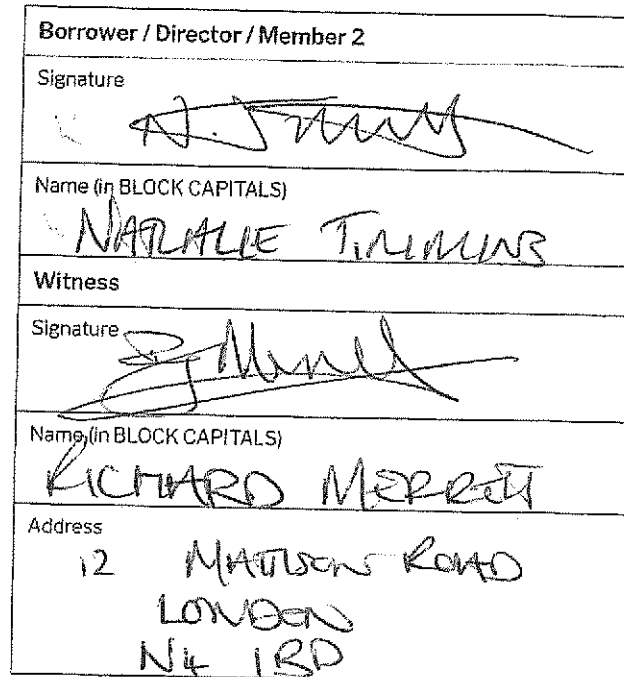 Borrower / Director / Member 2
Signature
N. Timmins
Name (in BLOCK CAPITALS)
NATALIE TIMMINS
Witness
Signature
Name (in BLOCK CAPITALS)
RICHARD MERRETT
Address
12 MATTISON ROAD
LONDON
N4 1BD